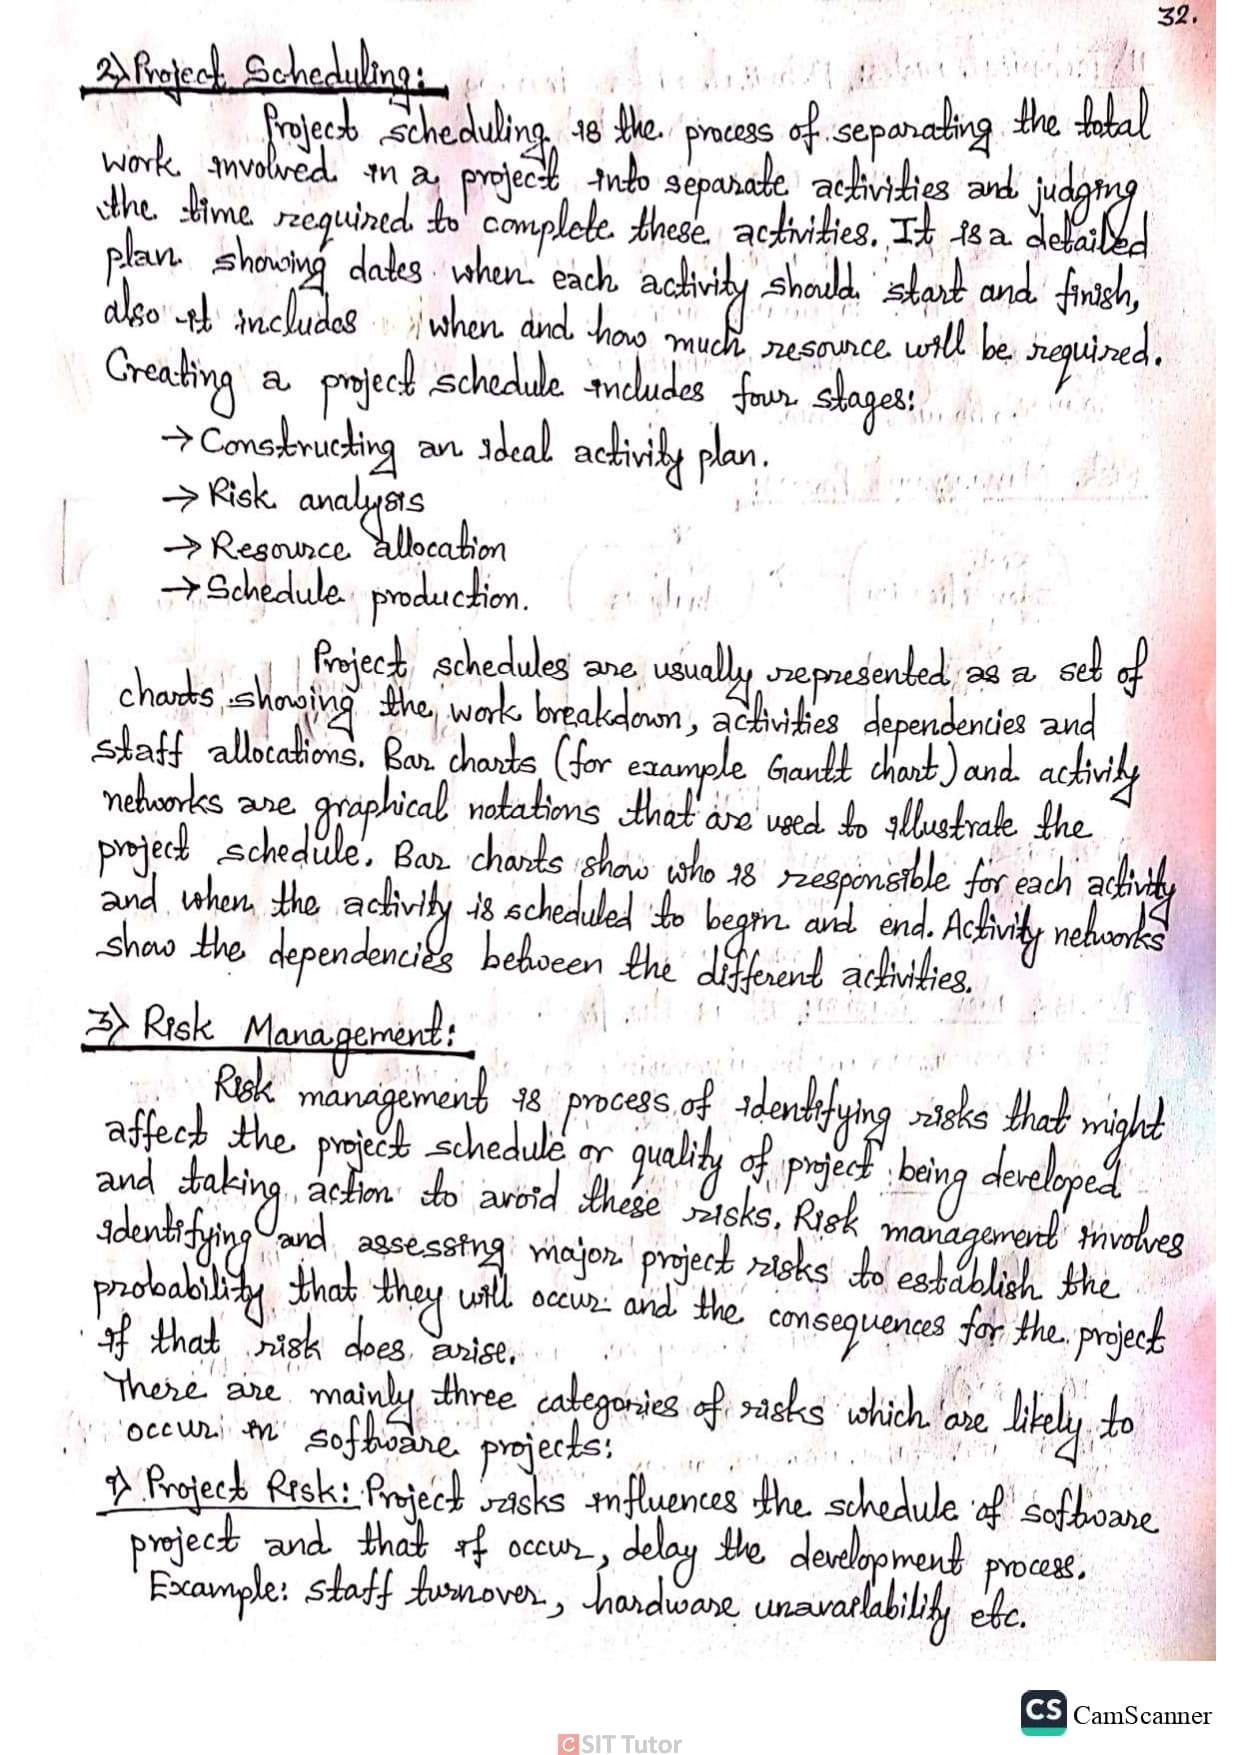 32.
2) Project Scheduling:
Project scheduling is the process of separating the total
work involved in a project into separate activities and judging
the time required to complete these activities. It is a detailed
plan showing dates when each activity should start and finish,
also it includes when and how much resource will be required.
Creating a project schedule includes four stages:
→ Constructing an ideal activity plan.
→ Risk analysis
→ Resource allocation
→ Schedule production.
Project schedules are usually represented as a set of
charts showing the work breakdown, activities dependencies and
staff allocations. Bar charts (for example Gantt chart) and activity
networks are graphical notations that are used to illustrate the
project schedule. Bar charts show who is responsible for each activity
and when the activity is scheduled to begin and end. Activity networks
show the dependencies between the different activities.
3) Risk Management:
Risk management is process of identifying risks that might
affect the project schedule or quality of project being developed
and taking action to avoid these risks. Risk management involves
identifying and assessing major project risks to establish the
probability that they will occur and the consequences for the project
if that risk does arise.
There are mainly three categories of risks which are likely to
occur in software projects:
i) Project Risk: Project risks influences the schedule of software
project and that if occur, delay the development process.
Example: staff turnover, hardware unavailability etc.
CS CamScanner
CSIT Tutor